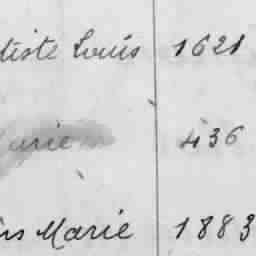 tiste Louis 1621
Marie 436
is Marie 1883